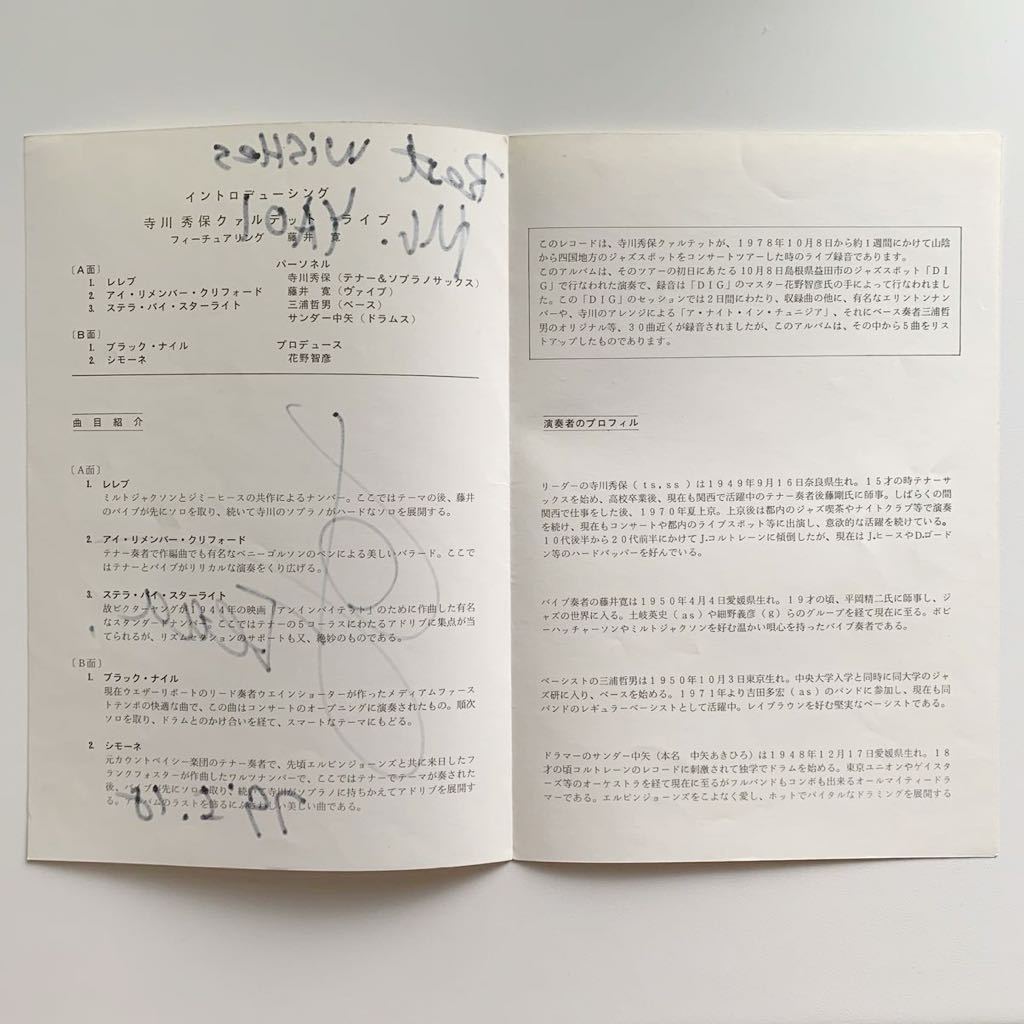 Best wisHes
Mr. YAOI
イントロデューシング
寺川 秀保クァルテット ライブ
フィーチュアリング 藤井 寛
〔A面〕
1. レレブ
2. アイ・リメンバー・クリフォード
3. ステラ・バイ・スターライト
〔B面〕
1. ブラック・ナイル
2. シモーネ
パーソネル
寺川秀保(テナー&ソプラノサックス)
藤井 寛(ヴァイブ)
三浦哲男(ベース)
サンダー中矢(ドラムス)
プロデュース
花野智彦
曲目紹介
〔A面〕
1. レレブ
ミルトジャクソンとジミーヒースの共作によるナンバー。ここではテーマの後、藤井
のバイブが先にソロを取り、続いて寺川のソプラノがハードなソロを展開する。
2. アイ・リメンバー・クリフォード
テナー奏者で作編曲でも有名なベニーゴルソンのペンによる美しいバラード。ここで
はテナーとバイブがリリカルな演奏をくり広げる。
3. ステラ・バイ・スターライト
故ビクターヤングが1944年の映画「アンインバイテット」のために作曲した有名
なスタンダードナンバー。ここではテナーの5コーラスにわたるアドリブに集点が当
てられるが、リズムセクションのサポートも又、絶妙のものである。
〔B面〕
1. ブラック・ナイル
現在ウエザーリポートのリード奏者ウエインショーターが作ったメディアムファース
トテンポの快適な曲で、この曲はコンサートのオープニングに演奏されたもの。順次
ソロを取り、ドラムとのかけ合いを経て、スマートなテーマにもどる。
2. シモーネ
元カウントベイシー楽団のテナー奏者で、先頃エルビンジョーンズと共に来日したフ
ランクフォスターが作曲したワルツナンバーで、ここではテナーでテーマが奏された
後、バイブが先にソロを取り、続いて寺川がソプラノに持ちかえてアドリブを展開す
る。アルバムのラストを飾るにふさわしい美しい曲である。
このレコードは、寺川秀保クァルテットが、1978年10月8日から約1週間にかけて山陰
から四国地方のジャズスポットをコンサートツアーした時のライブ録音であります。
このアルバムは、そのツアーの初日にあたる10月8日島根県益田市のジャズスポット「DI
G」で行なわれた演奏で、録音は「DIG」のマスター花野智彦氏の手によって行なわれまし
た。この「DIG」のセッションでは2日間にわたり、収録曲の他に、有名なエリントンナン
バーや、寺川のアレンジによる「ア・ナイト・イン・チュニジア」、それにベース奏者三浦哲
男のオリジナル等、30曲近くが録音されましたが、このアルバムは、その中から5曲をリス
トアップしたものであります。
演奏者のプロフィル
リーダーの寺川秀保(ts,ss)は1949年9月16日奈良県生れ。15才の時テナーサ
ックスを始め、高校卒業後、現在も関西で活躍中のテナー奏者後藤剛氏に師事。しばらくの間
関西で仕事をした後、1970年夏上京。上京後は都内のジャズ喫茶やナイトクラブ等で演奏
を続け、現在もコンサートや都内のライブスポット等に出演し、意欲的な活躍を続けている。
10代後半から20代前半にかけてJ.コルトレーンに傾倒したが、現在はJ.ヒースやD.ゴード
ン等のハードバッパーを好んでいる。
バイブ奏者の藤井寛は1950年4月4日愛媛県生れ。19才の頃、平岡精二氏に師事し、ジ
ャズの世界に入る。土岐英史(as)や細野義彦(g)らのグループを経て現在に至る。ボビ
ーハッチャーソンやミルトジャクソンを好む温かい唄心を持ったバイブ奏者である。
ベーシストの三浦哲男は1950年10月3日東京生れ。中央大学入学と同時に同大学のジャ
ズ研に入り、ベースを始める。1971年より吉田多宏(as)のバンドに参加し、現在も同
バンドのレギュラーベーシストとして活躍中。レイブラウンを好む堅実なベーシストである。
ドラマーのサンダー中矢(本名 中矢あきひろ)は1948年12月17日愛媛県生れ。18
才の頃コルトレーンのレコードに刺激されて独学でドラムを始める。東京ユニオンやゲイスタ
ーズ等のオーケストラを経て現在に至るがフルバンドもコンボも出来るオールマイティードラ
マーである。エルビンジョーンズをこよなく愛し、ホットでバイタルなドラミングを展開する